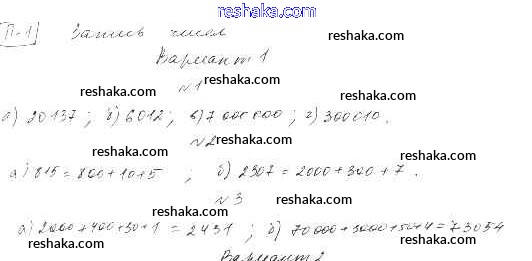 reshaka.com
[П-1] Запись чисел
reshaka.com
Вариант 1
reshaka.com
№1
reshaka.com
reshaka.com
а) 20137; б) 6012; в) 7 000 000; г) 300010.
reshaka.com
№2
reshaka.com
reshaka.com
а) 815 = 800+10+5; б) 2307 = 2000+300+7.
reshaka.com
№3
reshaka.com
reshaka.com
а) 2000+400+30+1 = 2431; б) 70000+3000+50+4=73054
reshaka.com
reshaka.com
Вариант 2